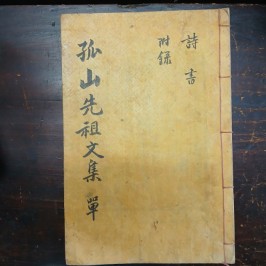 詩書
附錄
孤山先祖文集 單